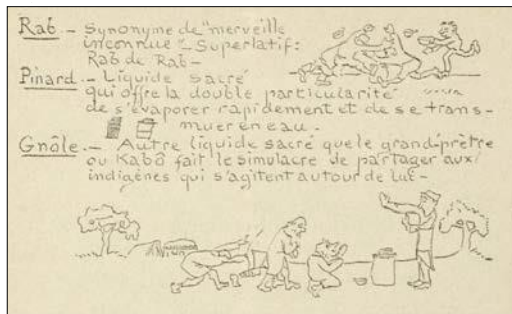 Rab - Synonyme de "merveille
inconnue" - Superlatif:
Rab de Rab -
Pinard. - Liquide sacré
qui offre la double particularité
de s'évaporer rapidement et de se trans-
muer en eau.
Gnôle. - Autre liquide sacré que le grand-prêtre
ou Kabô fait le simulacre de partager aux
indigènes qui s'agitent autour de lui -